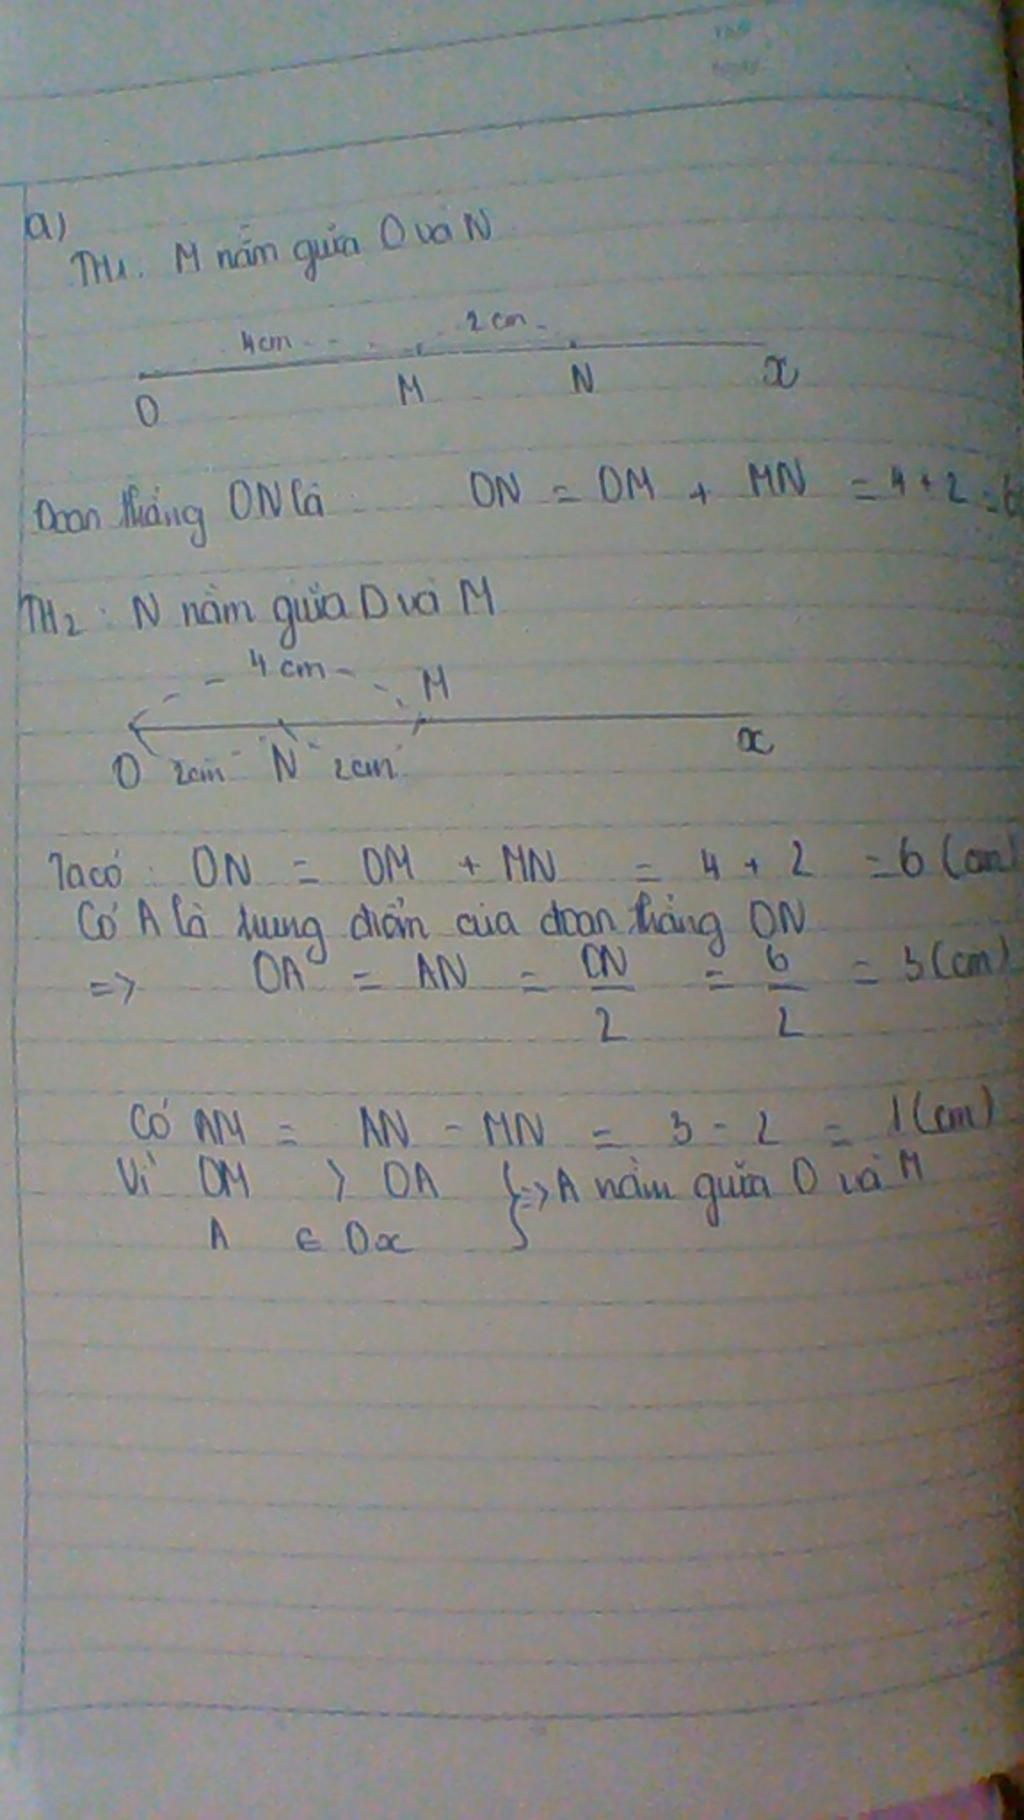 a)
TH1. M nằm giữa O và N
4cm 2cm
O M N x
Đoạn thẳng ON là ON = OM + MN = 4 + 2 = 6
TH2: N nằm giữa O và M
4 cm M
O 2cm N 2cm x
Ta có: ON = OM + MN = 4 + 2 = 6 (cm)
Có A là trung điểm của đoạn thẳng ON
=> OA = AN = ON/2 = 6/2 = 3 (cm)
Có AM = AN - MN = 3 - 2 = 1 (cm)
Vì OM > OA } => A nằm giữa O và M
A ∈ Ox